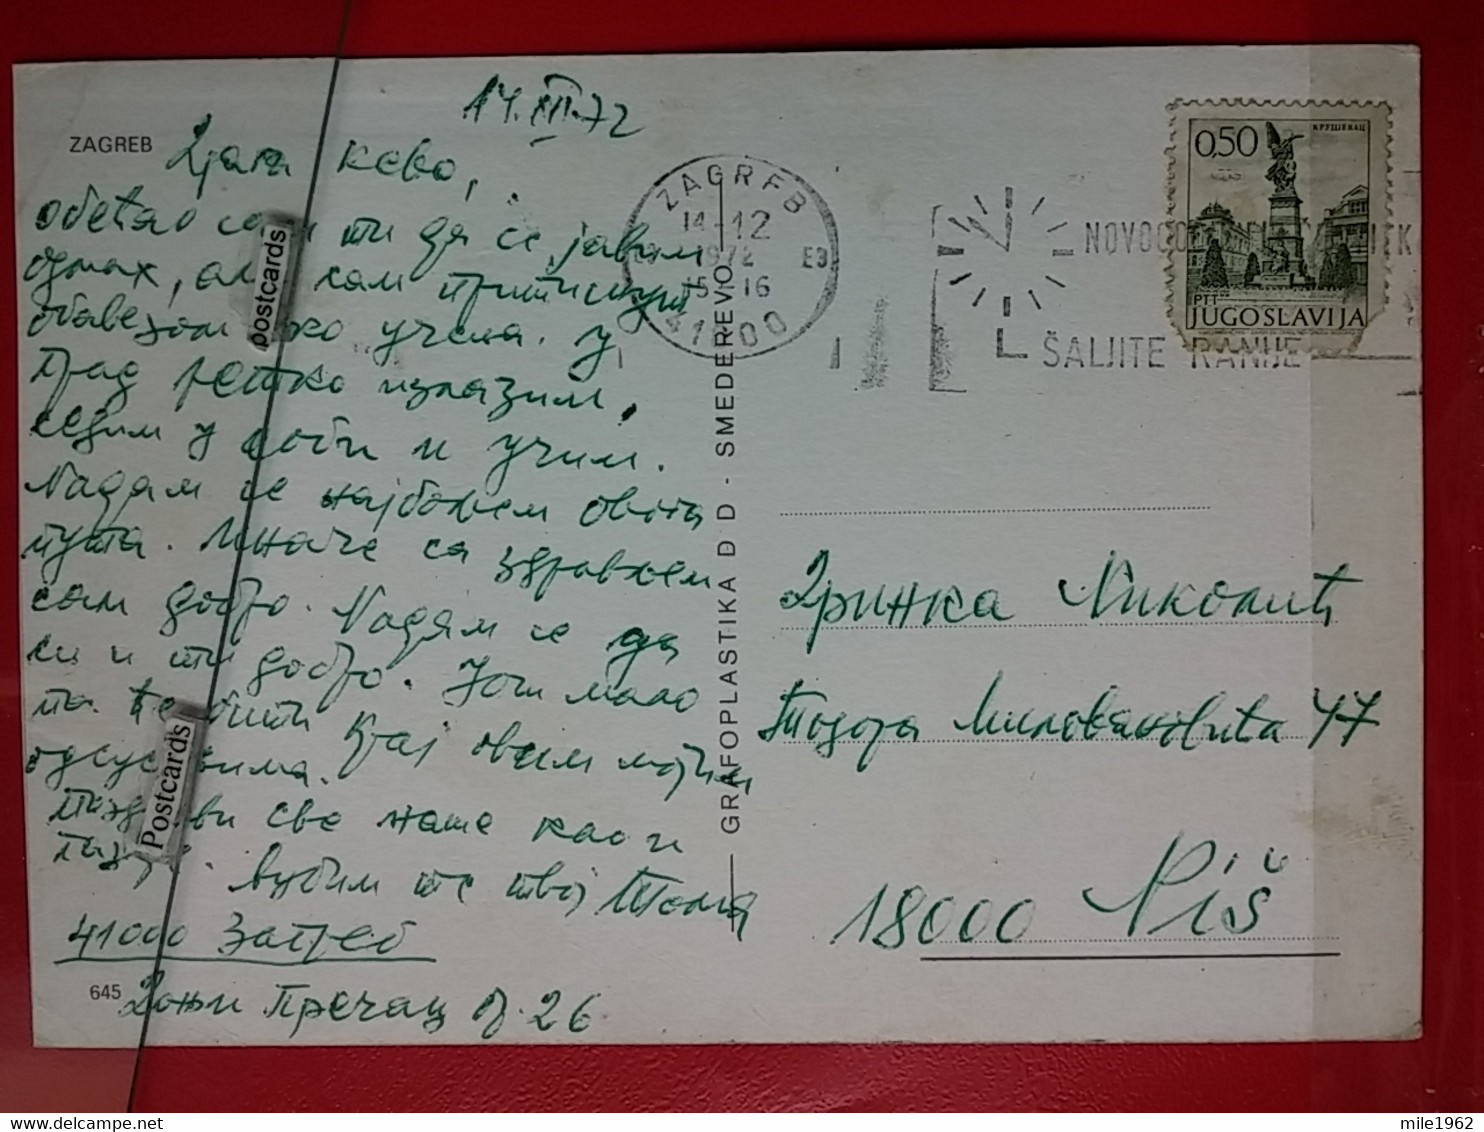 14.XII.72
ZAGREB
Драга кево,
обећао сам ти да се јавим
одмах, али сам притиснут
обавезом око учења. У
град ретко излазим,
седим у соби и учим.
Надам се најбољем овога
пута. Иначе са здрављем
сам добро. Надам се да
си и ти добро. Још мало
па ће бити крај овим мојим
одсуствима.
Поздрави све наше као и
Воли те твој Тома
41000 Загреб
645
Доњи Пречац 26
GRAFOPLASTIKA D D - SMEDEREVO
ZAGREB
14-12
1972
15-16
E3
41000
ŠALJITE RANIJE
0,50
КРУШЕВАЦ
PTT
JUGOSLAVIJA
Зринка Николић
Тодора Миловановића 47
18000 Niš
postcards
Postcards
mile1962